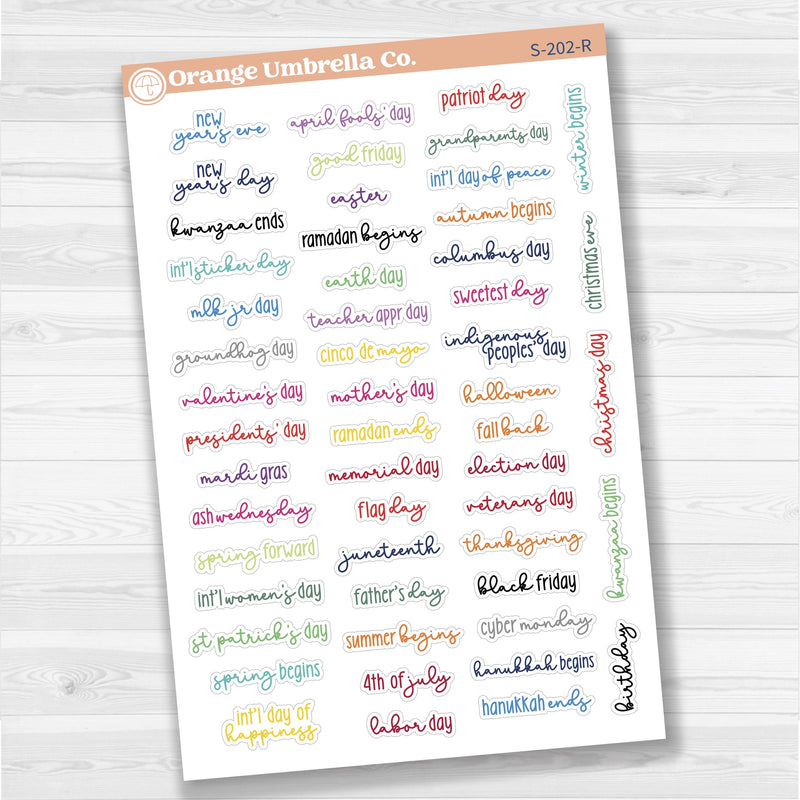 Orange Umbrella Co.
S-202-R
new
year's eve
new
year's day
kwanzaa ends
int'l sticker day
mlk jr day
groundhog day
valentine's day
presidents' day
mardi gras
ash wednesday
spring forward
int'l women's day
st patrick's day
spring begins
int'l day of
happiness
april fools' day
good friday
easter
ramadan begins
earth day
teacher appr day
cinco de mayo
mother's day
ramadan ends
memorial day
flag day
juneteenth
father's day
summer begins
4th of july
labor day
patriot day
grandparents day
int'l day of peace
autumn begins
columbus day
sweetest day
indigenous
peoples' day
halloween
fall back
election day
veterans day
thanksgiving
black friday
cyber monday
hanukkah begins
hanukkah ends
winter begins
christmas eve
christmas day
kwanzaa begins
birthday